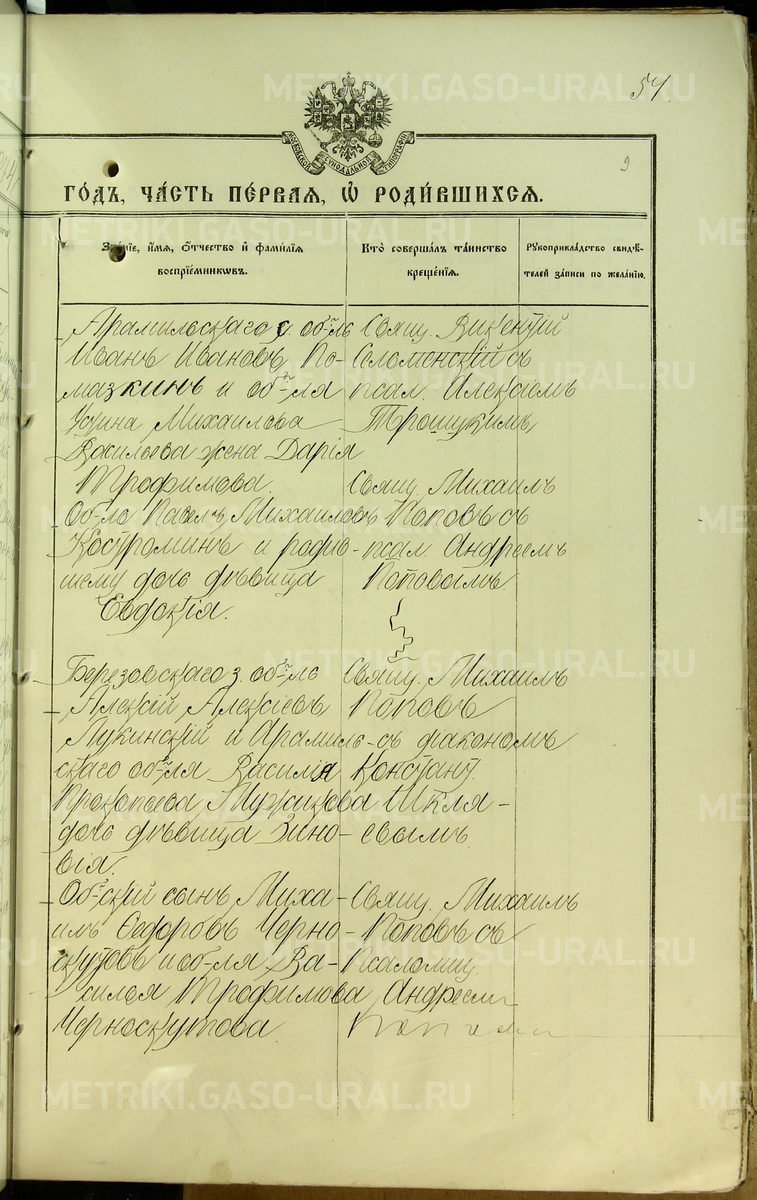 METRIKI.GASO-URAL.RU
54.
МОСКОВСКОЙ СУНОДАЛЬНОЙ ТИПОГРАФІИ
9
ГОДЪ, ЧАСТЬ ПЕРВАЯ, Ѡ РОДИВШИХСЯ.
Званіе, имя, отчество и фамилія воспріемниковъ.
Кто совершалъ таинство крещенія.
Рукоприкладство свидѣтелей записи по желанію.
Арамильскаго с. об-ль
Иванъ Ивановъ По-
мазкинъ и об-ля
Михаилова
Васильева жена Дарія
Трофимова.
Свящ. Викентій
Селоменскій съ
псал. Алексіемъ
Троицкимъ
Об-ль Павелъ Михаиловъ
Костроминъ и родив-
шему дочь дѣвица
Евдокія.
Свящ. Михаилъ
Поповъ съ
псал. Андреемъ
Поповымъ
Березовскаго з. об-ль
Алексій Алексіевъ
Лукинскій и Арамиль-
скаго об-ля Василія
Прокопьева Мужикова
дочь дѣвица Зино-
вія.
Свящ. Михаилъ
Поповъ
съ діакономъ
Констант.
Шкля-
евымъ
Об-скій сынъ Миха-
илъ Ѳедоровъ Черно-
скутовъ и об-ля Ва-
силья Трофимова
Черноскутова
Свящ. Михаилъ
Поповъ съ
Псаломщ.
Андреем
METRIKI.GASO-URAL.RU